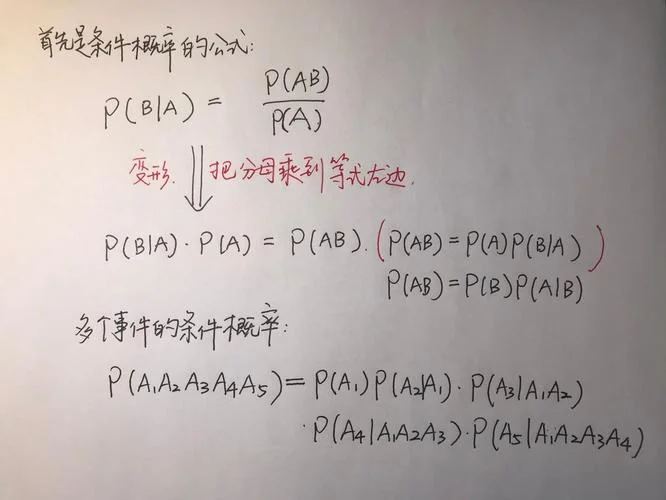 首先是条件概率的公式:
P(B|A) = P(AB) / P(A)
变形. 把分母乘到等式左边.
P(B|A)·P(A) = P(AB). (P(AB)=P(A)P(B|A))
P(AB)=P(B)P(A|B)
多个事件的条件概率:
P(A₁A₂A₃A₄A₅)=P(A₁)P(A₂|A₁)·P(A₃|A₁A₂)
·P(A₄|A₁A₂A₃)·P(A₅|A₁A₂A₃A₄)